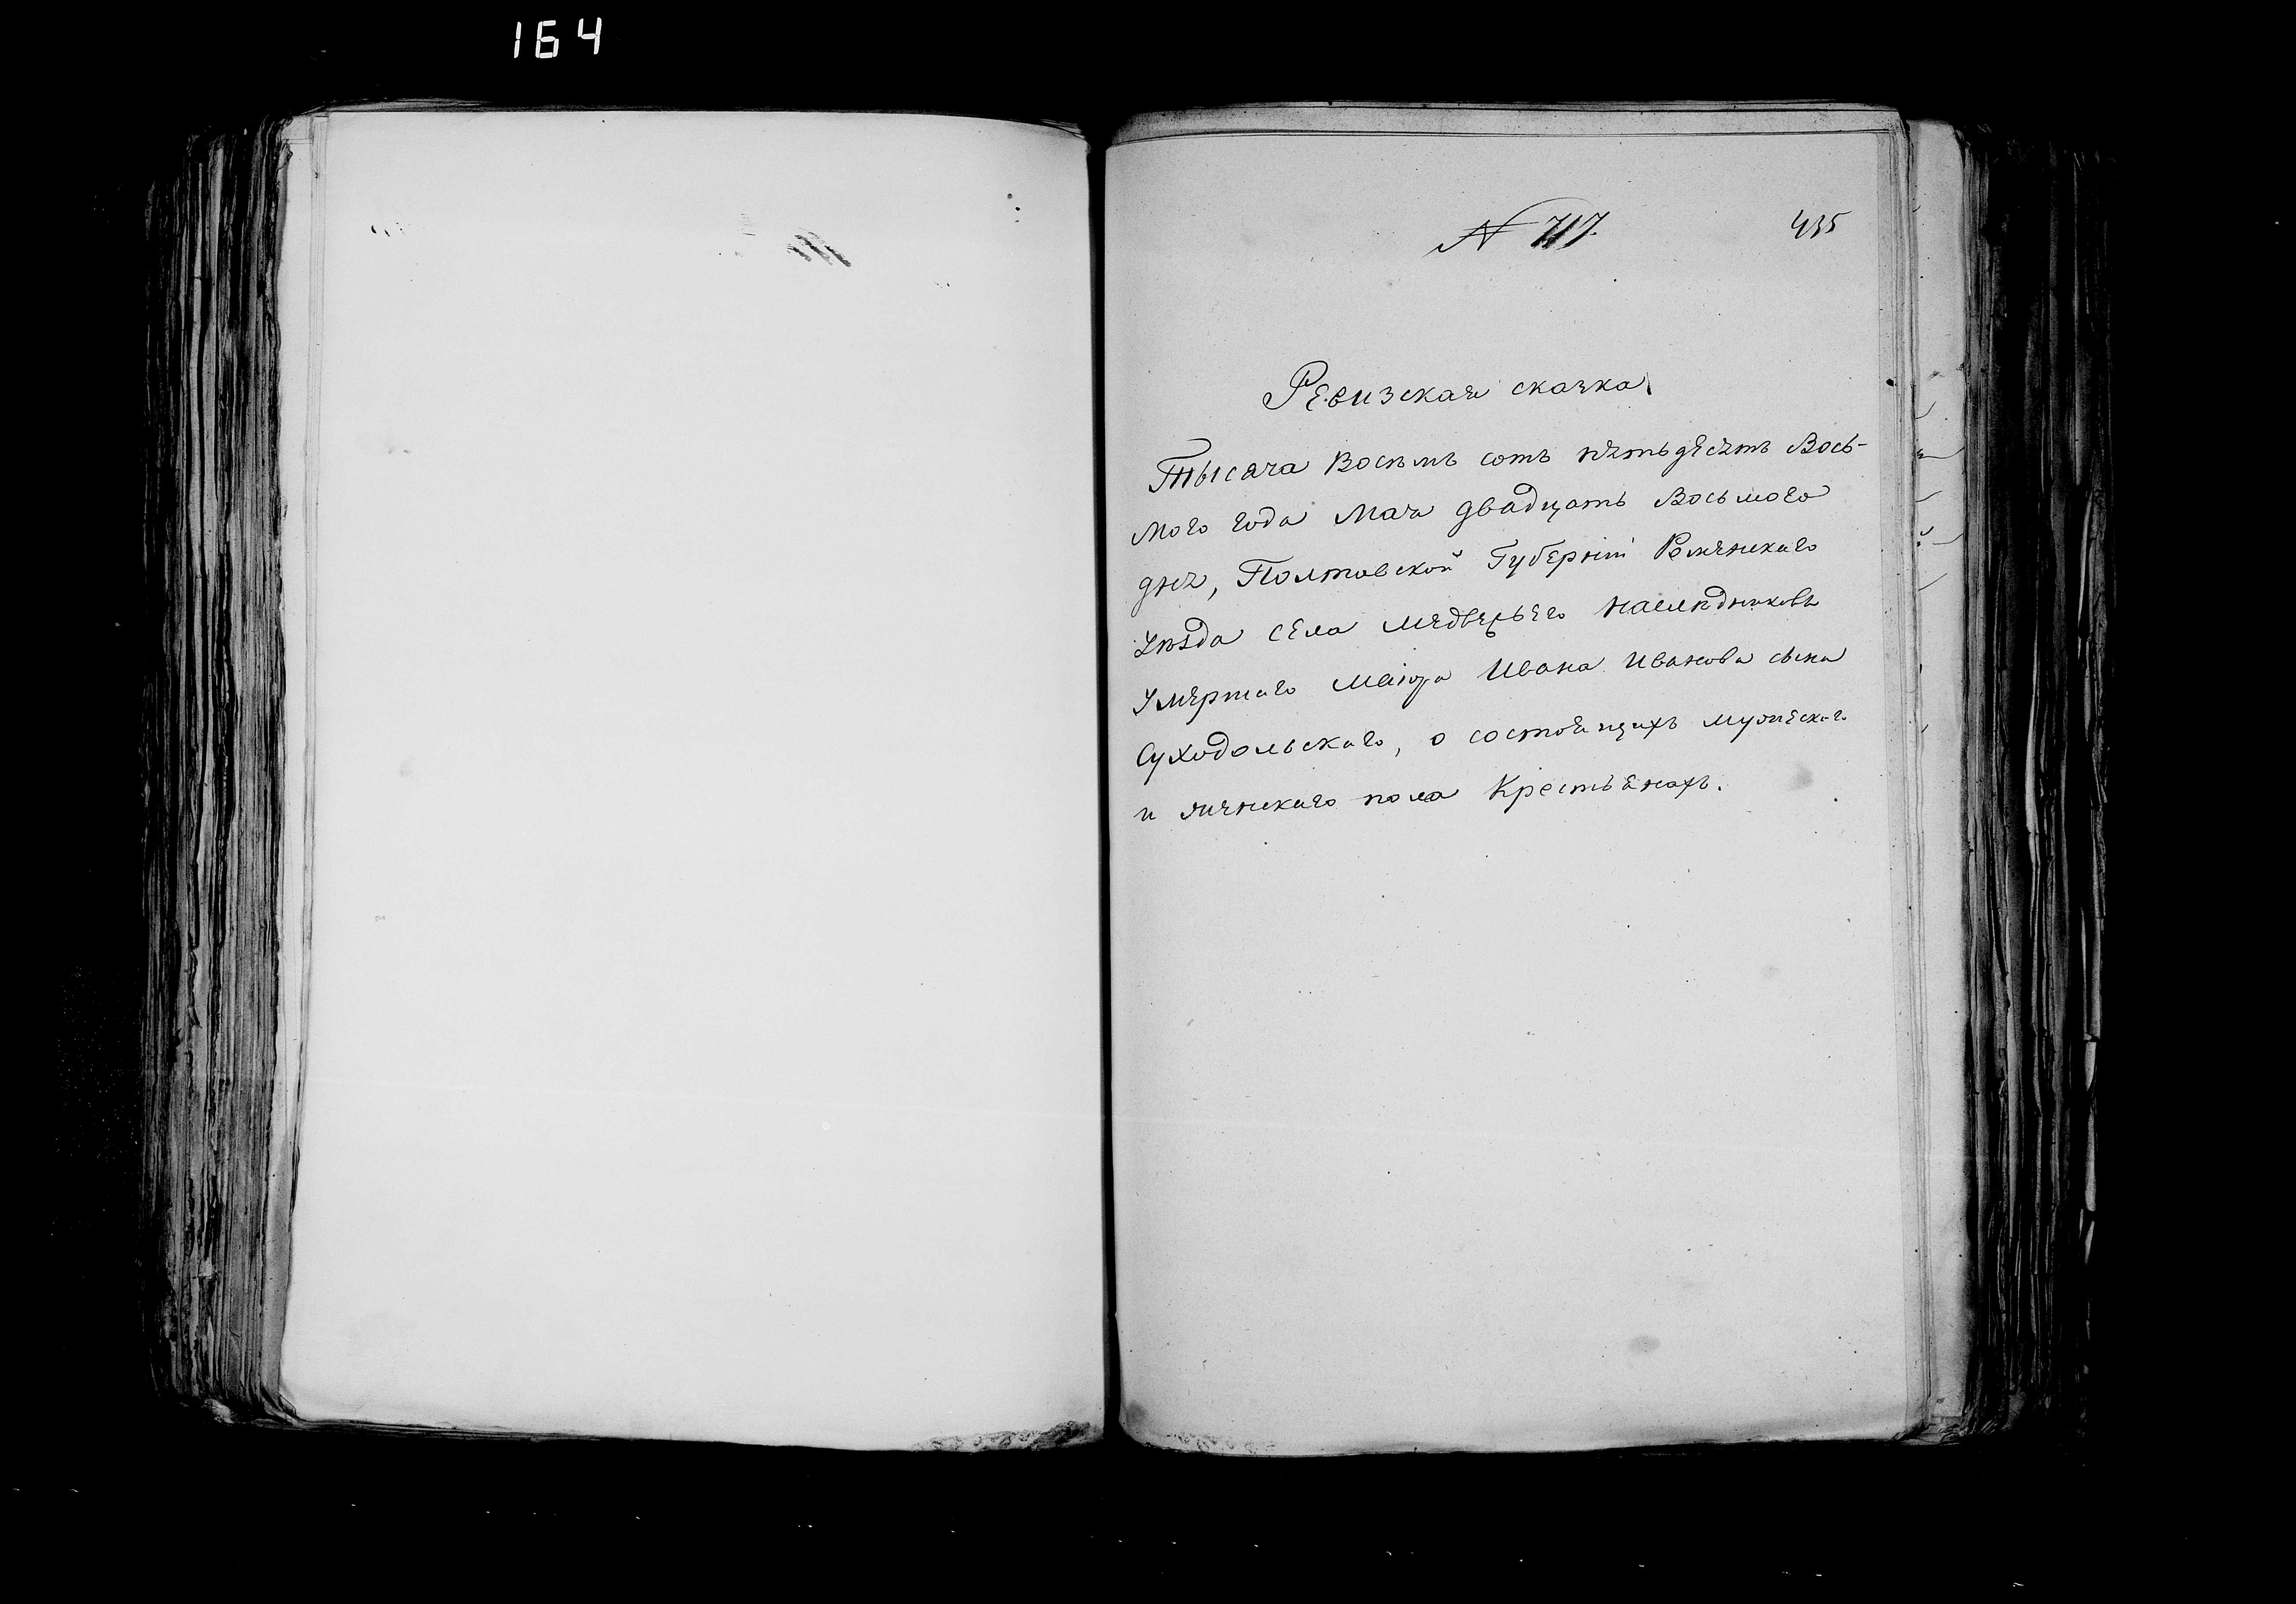 164
N 717.
435
Ревизская сказка
Тысяча восемь сотъ пятьдесятъ Вось-
мого года Мая двадцать Восьмого
дня, Полтавской Губерніи Роменскаго
Уѣзда села Медвежьего наследниковъ
Умершаго Маіора Ивана Иванова сына
Суходольскаго, о состоящихъ мужескаго
и женскаго пола Крестьянахъ.